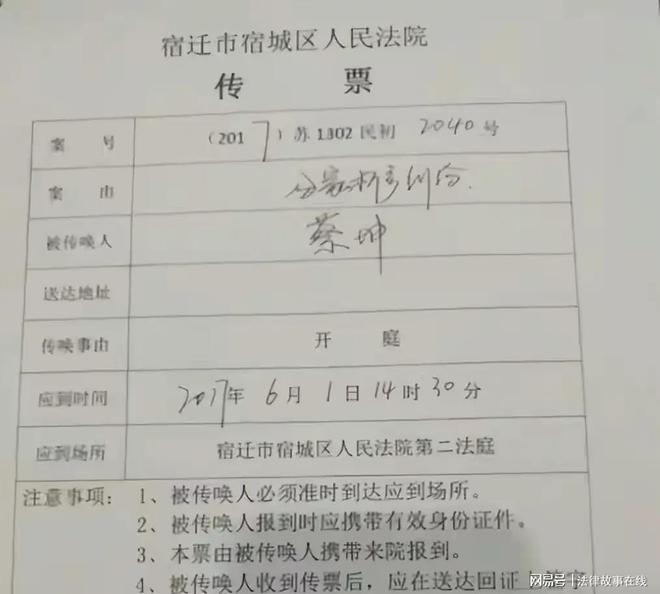 宿迁市宿城区人民法院
传 票
案 号 (2017)苏1302民初 2040号
案 由 分家析产纠纷.
被传唤人 蔡坤
送达地址
传唤事由 开 庭
应到时间 2017年 6月 1日 14时 30分
应到场所 宿迁市宿城区人民法院第二法庭
注意事项: 1、被传唤人必须准时到达应到场所。
2、被传唤人报到时应携带有效身份证件。
3、本票由被传唤人携带来院报到。
4、被传唤人收到传票后,应在送达回证上签字
网易号 | 法律故事在线